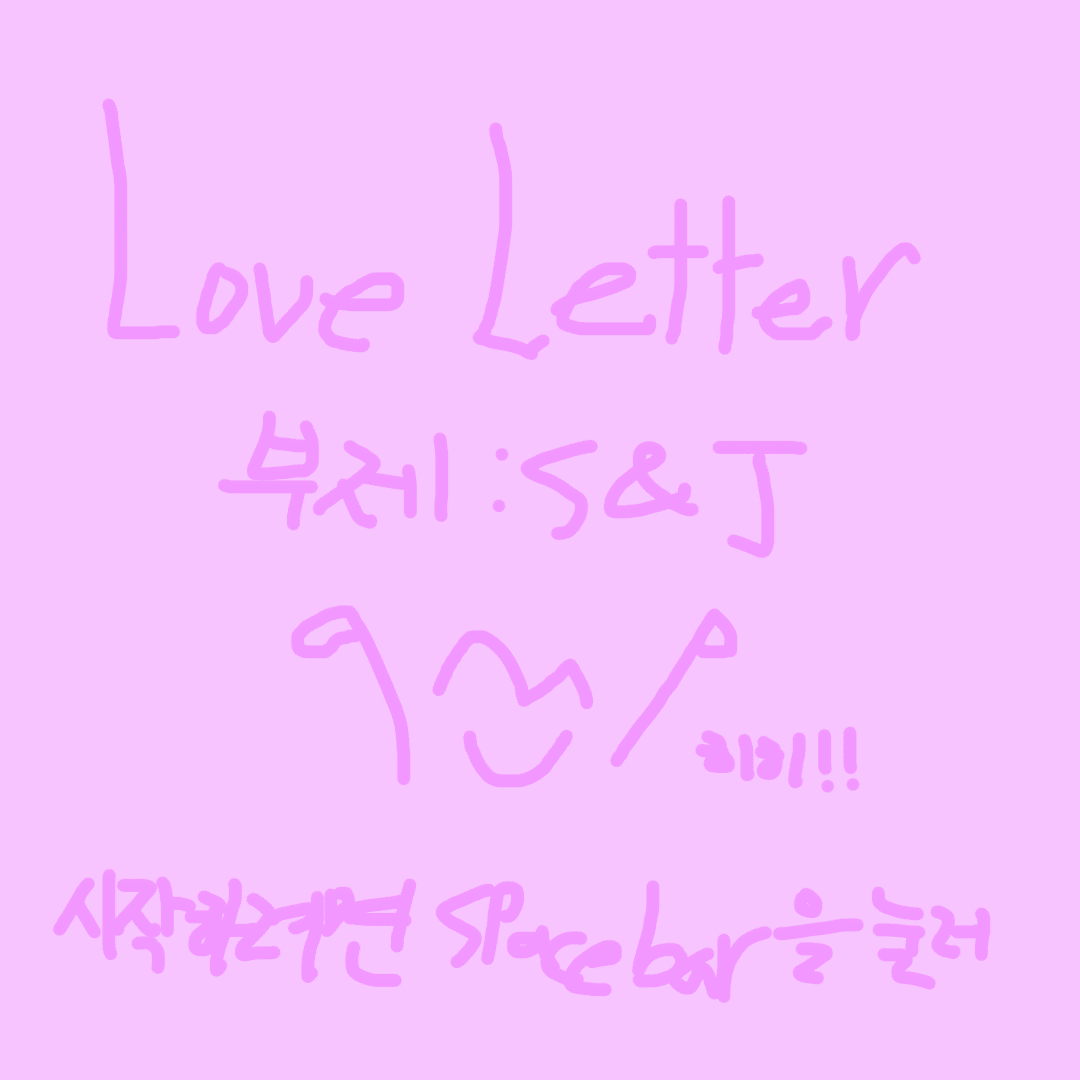 Love Letter
부제 : S & J
히히!!
시작하려면 Spacebar을 눌러